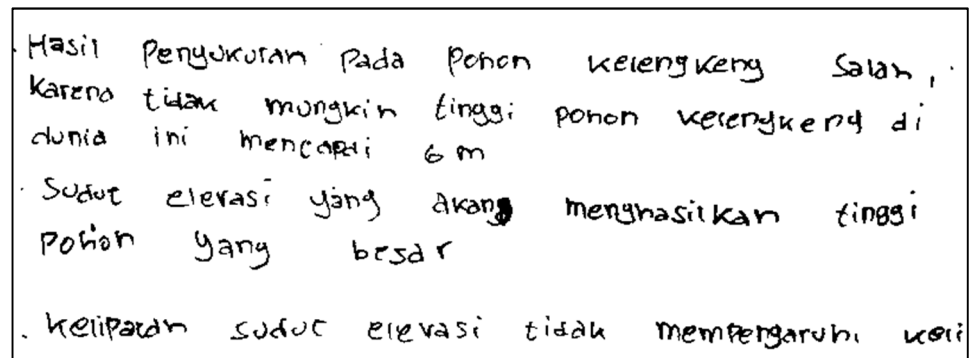 . Hasil Penyukuran Pada Pohon kelengkeng Salah,
karena tidak mungkin tinggi pohon kelengkeng di
dunia ini mencapai 6 m
. Sudut elevasi yang akang menghasilkan tinggi
Pohon yang besar
. Kelipatan sudut elevasi tidak mempengaruhi keli